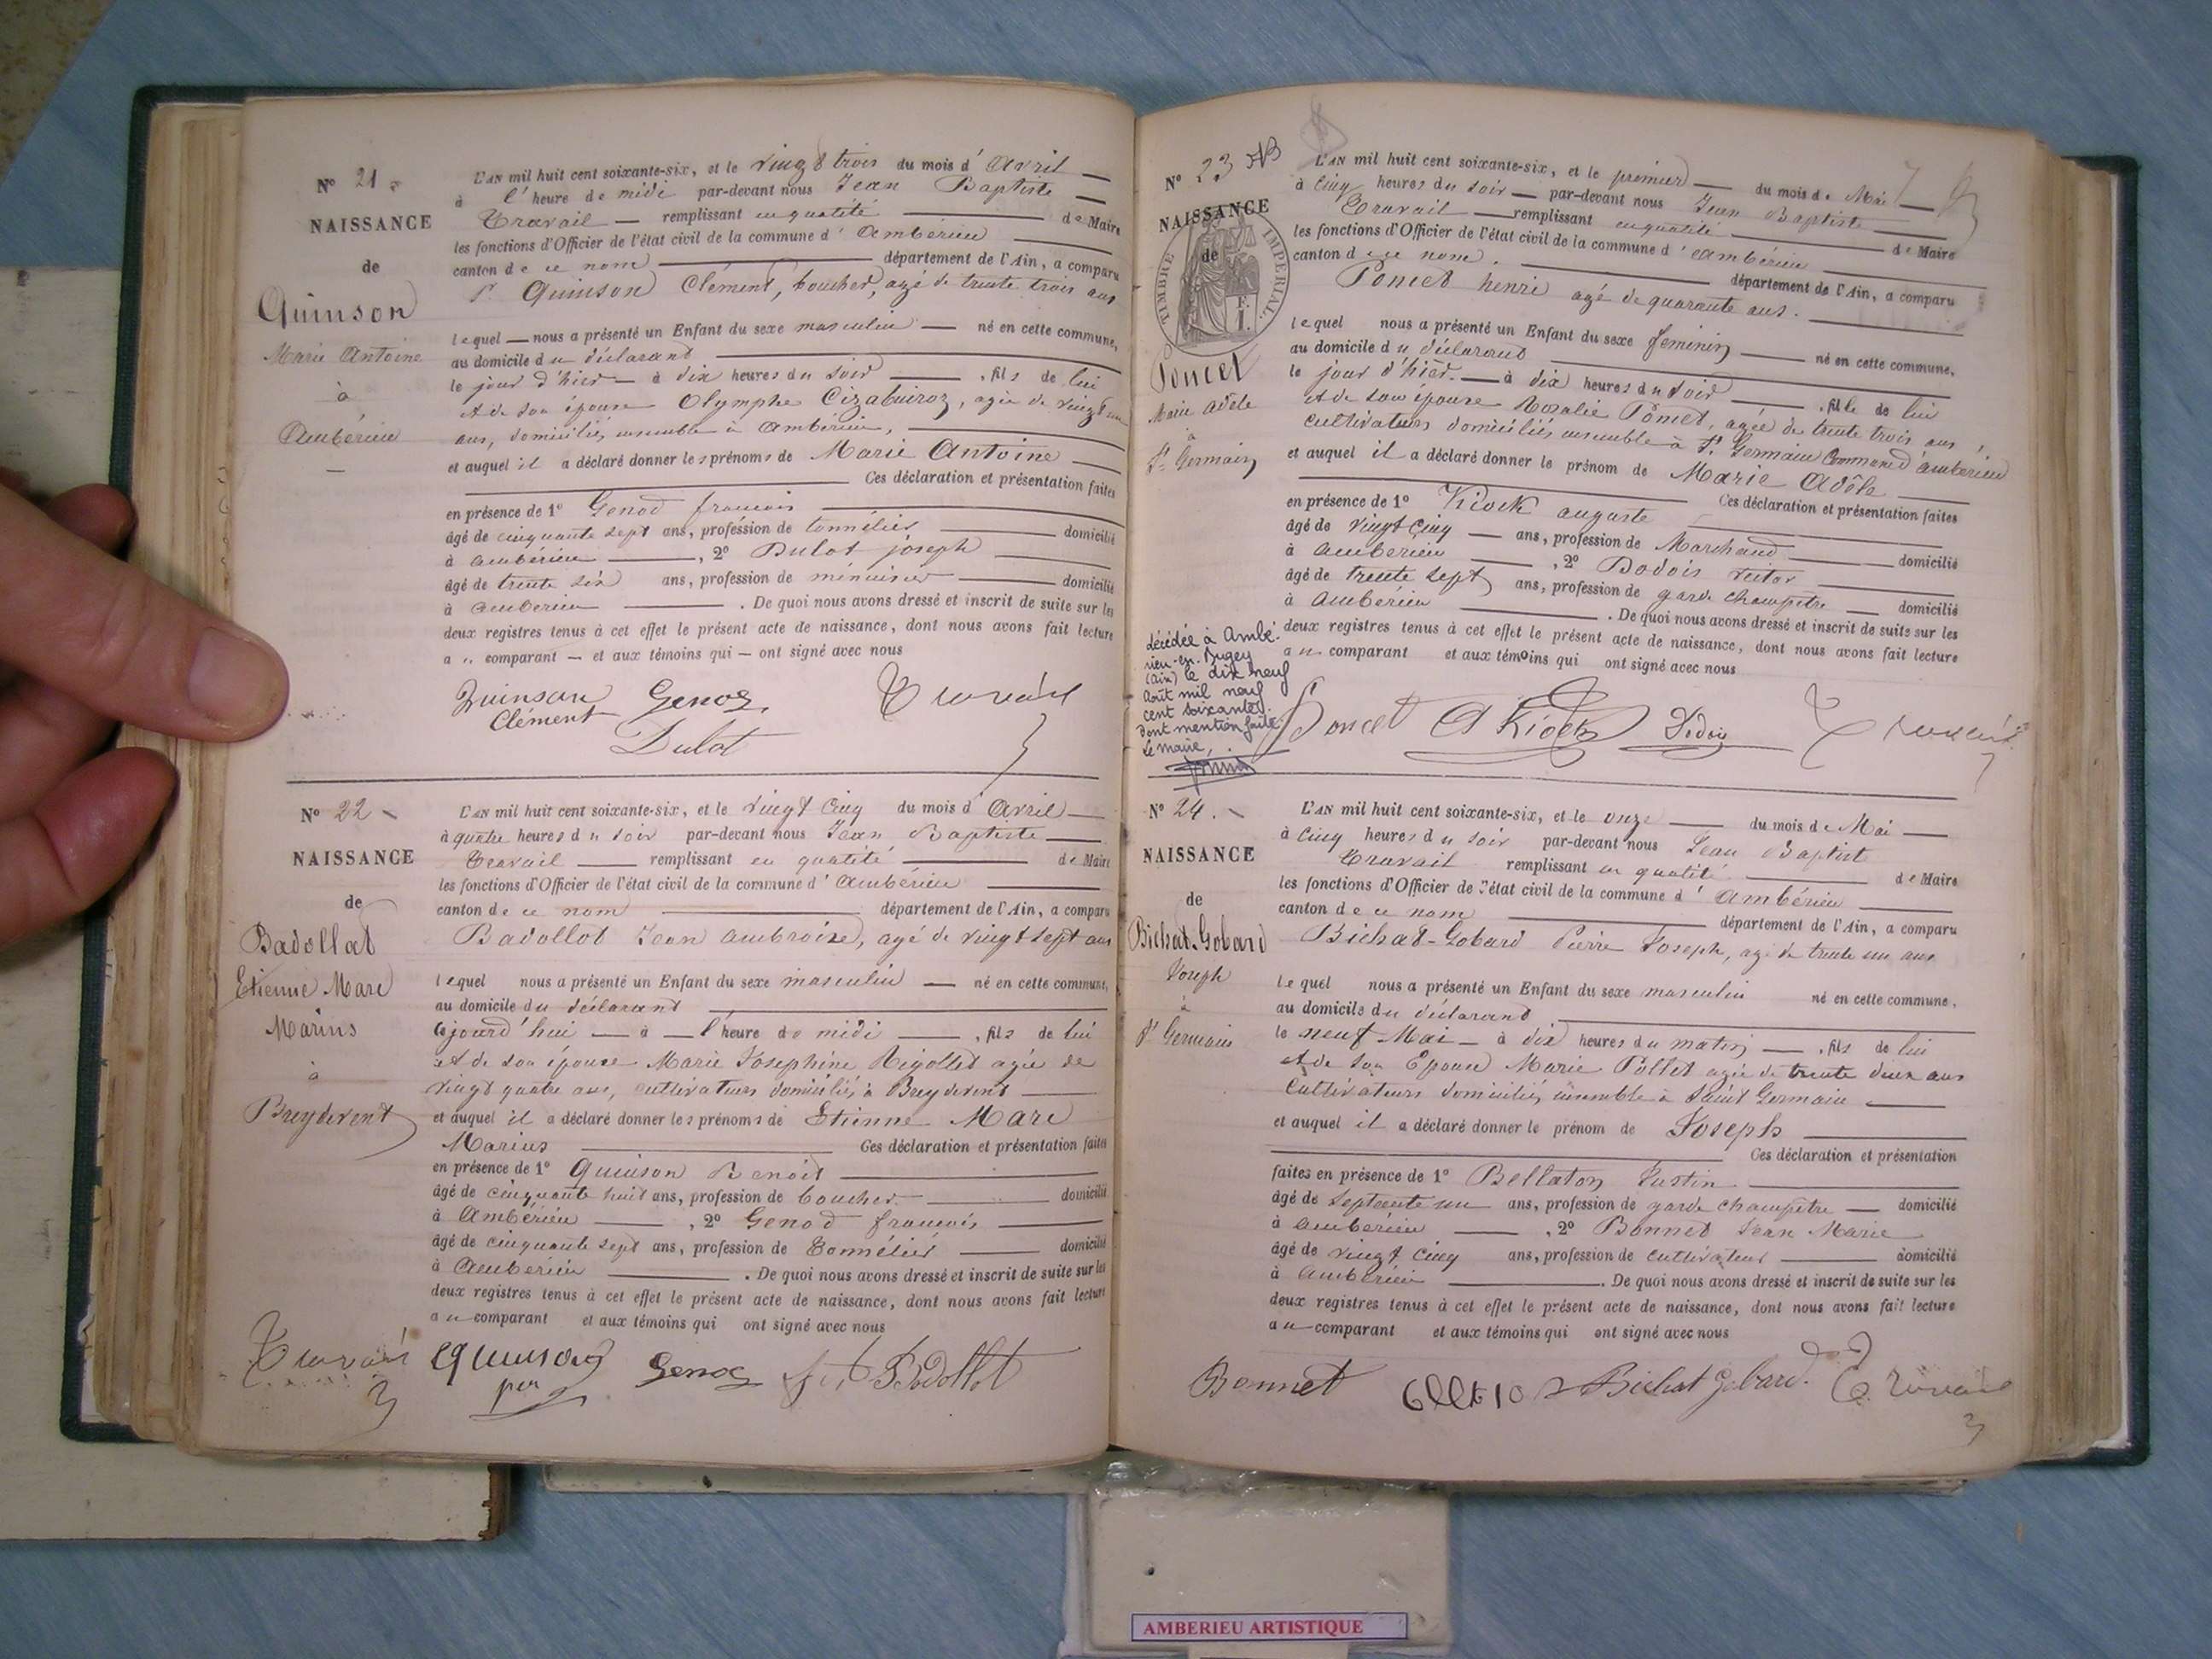 N° 21
NAISSANCE
de
Quinson
Marie Antoine
à
Ambérieu
L'AN mil huit cent soixante-six, et le vingt trois du mois d'Avril
à l'heure de midi par-devant nous Jean Baptiste
Travail remplissant en qualité de Maire
les fonctions d'Officier de l'état civil de la commune d'Ambérieu
canton de ce nom département de l'Ain, a comparu
Sr Quinson Clément, boucher, agé de trente trois ans
lequel nous a présenté un Enfant du sexe masculin né en cette commune,
au domicile du déclarant
le jour d'hier à dix heures du soir, fils de lui
et de son épouse Olymphe Cizabuiroz, agée de vingt un
ans, domiciliés ensemble à Ambérieu,
et auquel il a déclaré donner les prénoms de Marie Antoine
Ces déclaration et présentation faites
en présence de 1° Genod françois
âgé de cinquante sept ans, profession de tonnélier domicilié
à Ambérieu, 2° Dulot joseph
âgé de trente six ans, profession de ménuisier domicilié
à Ambérieu. De quoi nous avons dressé et inscrit de suite sur les
deux registres tenus à cet effet le présent acte de naissance, dont nous avons fait lecture
au comparant et aux témoins qui ont signé avec nous
Quinson Genod Travail
Clément
Dulot
N° 22
NAISSANCE
de
Badollat
Etienne Marc
Marius
à
Breydevent
L'AN mil huit cent soixante-six, et le vingt cinq du mois d'Avril
à quatre heures du soir par-devant nous Jean Baptiste
Travail remplissant en qualité de Maire
les fonctions d'Officier de l'état civil de la commune d'Ambérieu
canton de ce nom département de l'Ain, a comparu
Badollot Jean Ambroise, agé de vingt sept ans
lequel nous a présenté un Enfant du sexe masculin né en cette commune,
au domicile du déclarant
ajourd'hui à l'heure de midi, fils de lui
et de son épouse Marie Josephine Rigollet agée de
vingt quatre ans, cultivateurs domiciliés à Breydevent
et auquel il a déclaré donner les prénoms de Etienne Marc
Marius Ces déclaration et présentation faites
en présence de 1° Quinson Benoit
âgé de cinquante huit ans, profession de boucher domicilié
à Ambérieu, 2° Genod françois
âgé de cinquante sept ans, profession de Tonnélier domicilié
à Ambérieu. De quoi nous avons dressé et inscrit de suite sur les
deux registres tenus à cet effet le présent acte de naissance, dont nous avons fait lecture
au comparant et aux témoins qui ont signé avec nous
Travail Quinson Genod Badollot
per
N° 23
NAISSANCE
de
TIMBRE IMPERIAL
Poncet
Marie Adèle
à
St Germain
décédée à Ambé-
rieu-en-Bugey
(Ain) le dix neuf
Août mil neuf
cent soixante
dont mention faite
Le maire,
L'AN mil huit cent soixante-six, et le premier du mois de Mai
à cinq heures du soir par-devant nous Jean Baptiste
Travail remplissant en qualité de Maire
les fonctions d'Officier de l'état civil de la commune d'Ambérieu
canton de ce nom. département de l'Ain, a comparu
Poncet henri agé de quarante ans.
lequel nous a présenté un Enfant du sexe féminin né en cette commune,
au domicile du déclarant
le jour d'hier à dix heures du soir, fille de lui
et de son épouse Rosalie Poncet, agée de trente trois ans,
cultivateurs domiciliés ensemble à St Germain Commune d'ambérieu
et auquel il a déclaré donner le prénom de Marie Adèle
Ces déclaration et présentation faites
en présence de 1° Kiock auguste
âgé de vingt cinq ans, profession de Marchand domicilié
à Ambérieu, 2° Dodois victor
âgé de trente sept ans, profession de garde champêtre domicilié
à Ambérieu. De quoi nous avons dressé et inscrit de suite sur les
deux registres tenus à cet effet le présent acte de naissance, dont nous avons fait lecture
au comparant et aux témoins qui ont signé avec nous
Poncet A Kiock Dodois Travail
N° 24.
NAISSANCE
de
Bichat-Gobard
Joseph
à
St Germain
L'AN mil huit cent soixante-six, et le onze du mois de Mai
à cinq heures du soir par-devant nous Jean Baptist
Travail remplissant en qualité de Maire
les fonctions d'Officier de l'état civil de la commune d'Ambérieu
canton de ce nom département de l'Ain, a comparu
Bichat-Gobard Pierre Joseph, agé de trente un ans
lequel nous a présenté un Enfant du sexe masculin né en cette commune.
au domicile du déclarant
le neuf Mai à dix heures du matin, fils de lui
et de son Epouse Marie Pollet agée de trente deux ans
Cultivateurs domiciliés ensemble à Saint Germain
et auquel il a déclaré donner le prénom de Joseph
Ces déclaration et présentation
faites en présence de 1° Bellaton Justin
âgé de septente un ans, profession de garde champêtre domicilié
à Ambérieu, 2° Bonnet Jean Marie
âgé de vingt cinq ans, profession de cultivateur domicilié
à Ambérieu. De quoi nous avons dressé et inscrit de suite sur les
deux registres tenus à cet effet le présent acte de naissance, dont nous avons fait lecture
au comparant et aux témoins qui ont signé avec nous
Bonnet Bichat Gobard Travail
AMBERIEU ARTISTIQUE